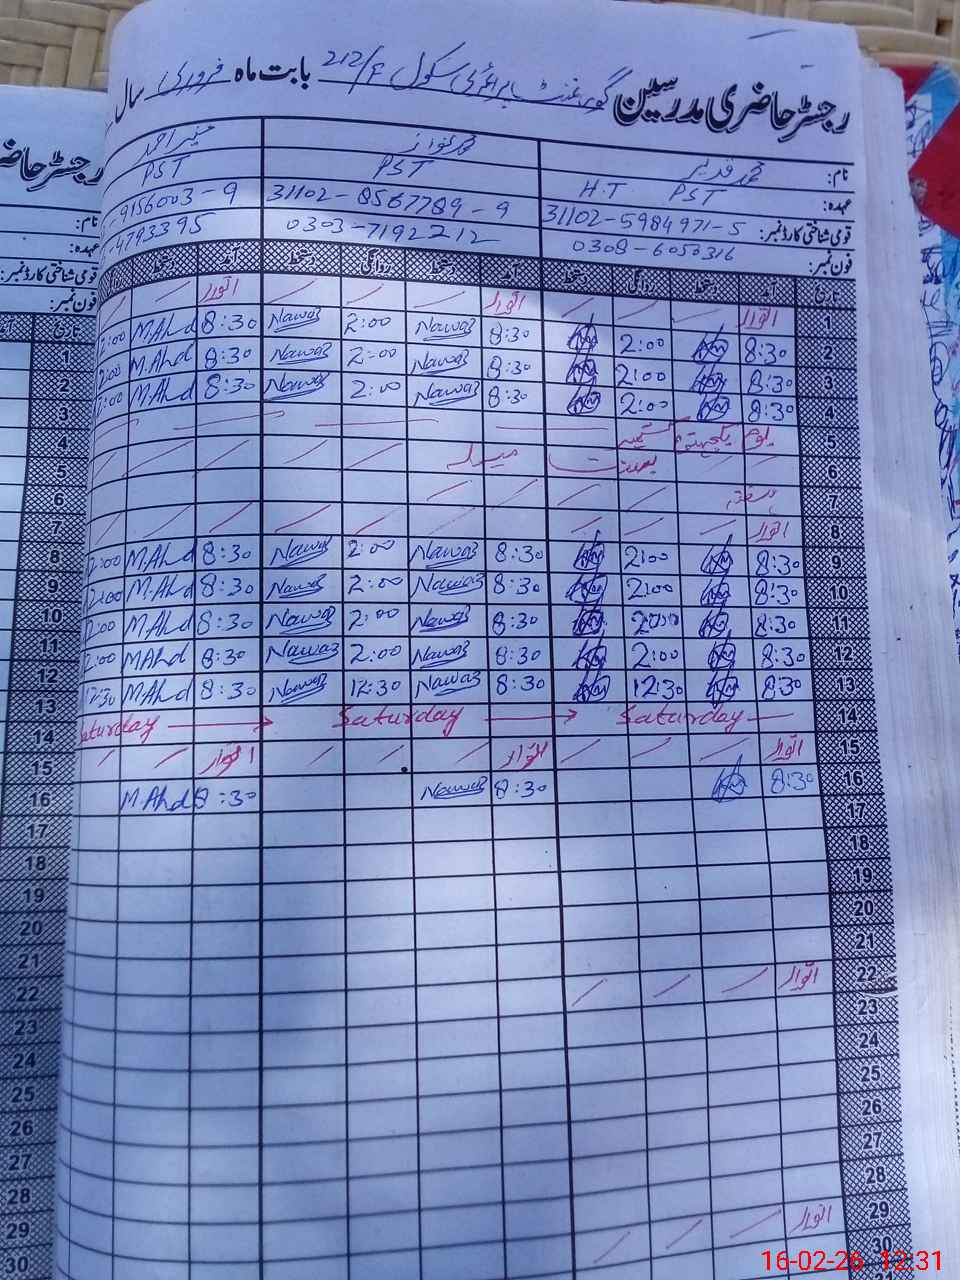 رجسٹر حاضری مدرسین گورنمنٹ پرائمری سکول 212/ع بابت ماہ فروری سال
نام: محمد قدیر محمد نواز منیر احمد
عہدہ: H.T PST PST PST
قومی شناختی کارڈ نمبر: 31102-5984971-5 31102-8567789-9 -9156003-9
فون نمبر: 0308-6050316 0303-7192212 -4793395
تاریخ آمد دستخط روانگی دستخط آمد دستخط روانگی دستخط آمد دستخط
1 اتوار اتوار اتوار
2 8:30 2:00 8:30 Nawaz 2:00 Nawaz 8:30 M.Ahd 2:00
3 8:30 2:00 8:30 Nawaz 2:00 Nawaz 8:30 M.Ahd 2:00
4 8:30 2:00 8:30 Nawaz 2:00 Nawaz 8:30 M.Ahd 2:00
5 یوم یکجہتی کشمیر
6 بسنت میلہ
7
8 اتوار
9 8:30 2:00 8:30 Nawaz 2:00 Nawaz 8:30 M.Ahd 2:00
10 8:30 2:00 8:30 Nawaz 2:00 Nawaz 8:30 M.Ahd 2:00
11 8:30 2:00 8:30 Nawaz 2:00 Nawaz 8:30 M.Ahd 2:00
12 8:30 2:00 8:30 Nawaz 2:00 Nawaz 8:30 M.Ahd 2:00
13 8:30 12:30 8:30 Nawaz 12:30 Nawaz 8:30 M.Ahd 12:30
14 Saturday Saturday Saturday
15 اتوار اتوار اتوار
16 8:30 8:30 Nawaz 8:30 M.Ahd
17
18
19
20
21
22 اتوار
23
24
25
26
27
28
29 اتوار
30
رجسٹر حاضر
نام:
عہدہ:
قومی شناختی کارڈ نمبر:
فون نمبر:
تاریخ
1
2
3
4
5
6
7
8
9
10
11
12
13
14
15
16
17
18
19
20
21
22
23
24
25
26
27
28
29
30
16-02-26 12:31